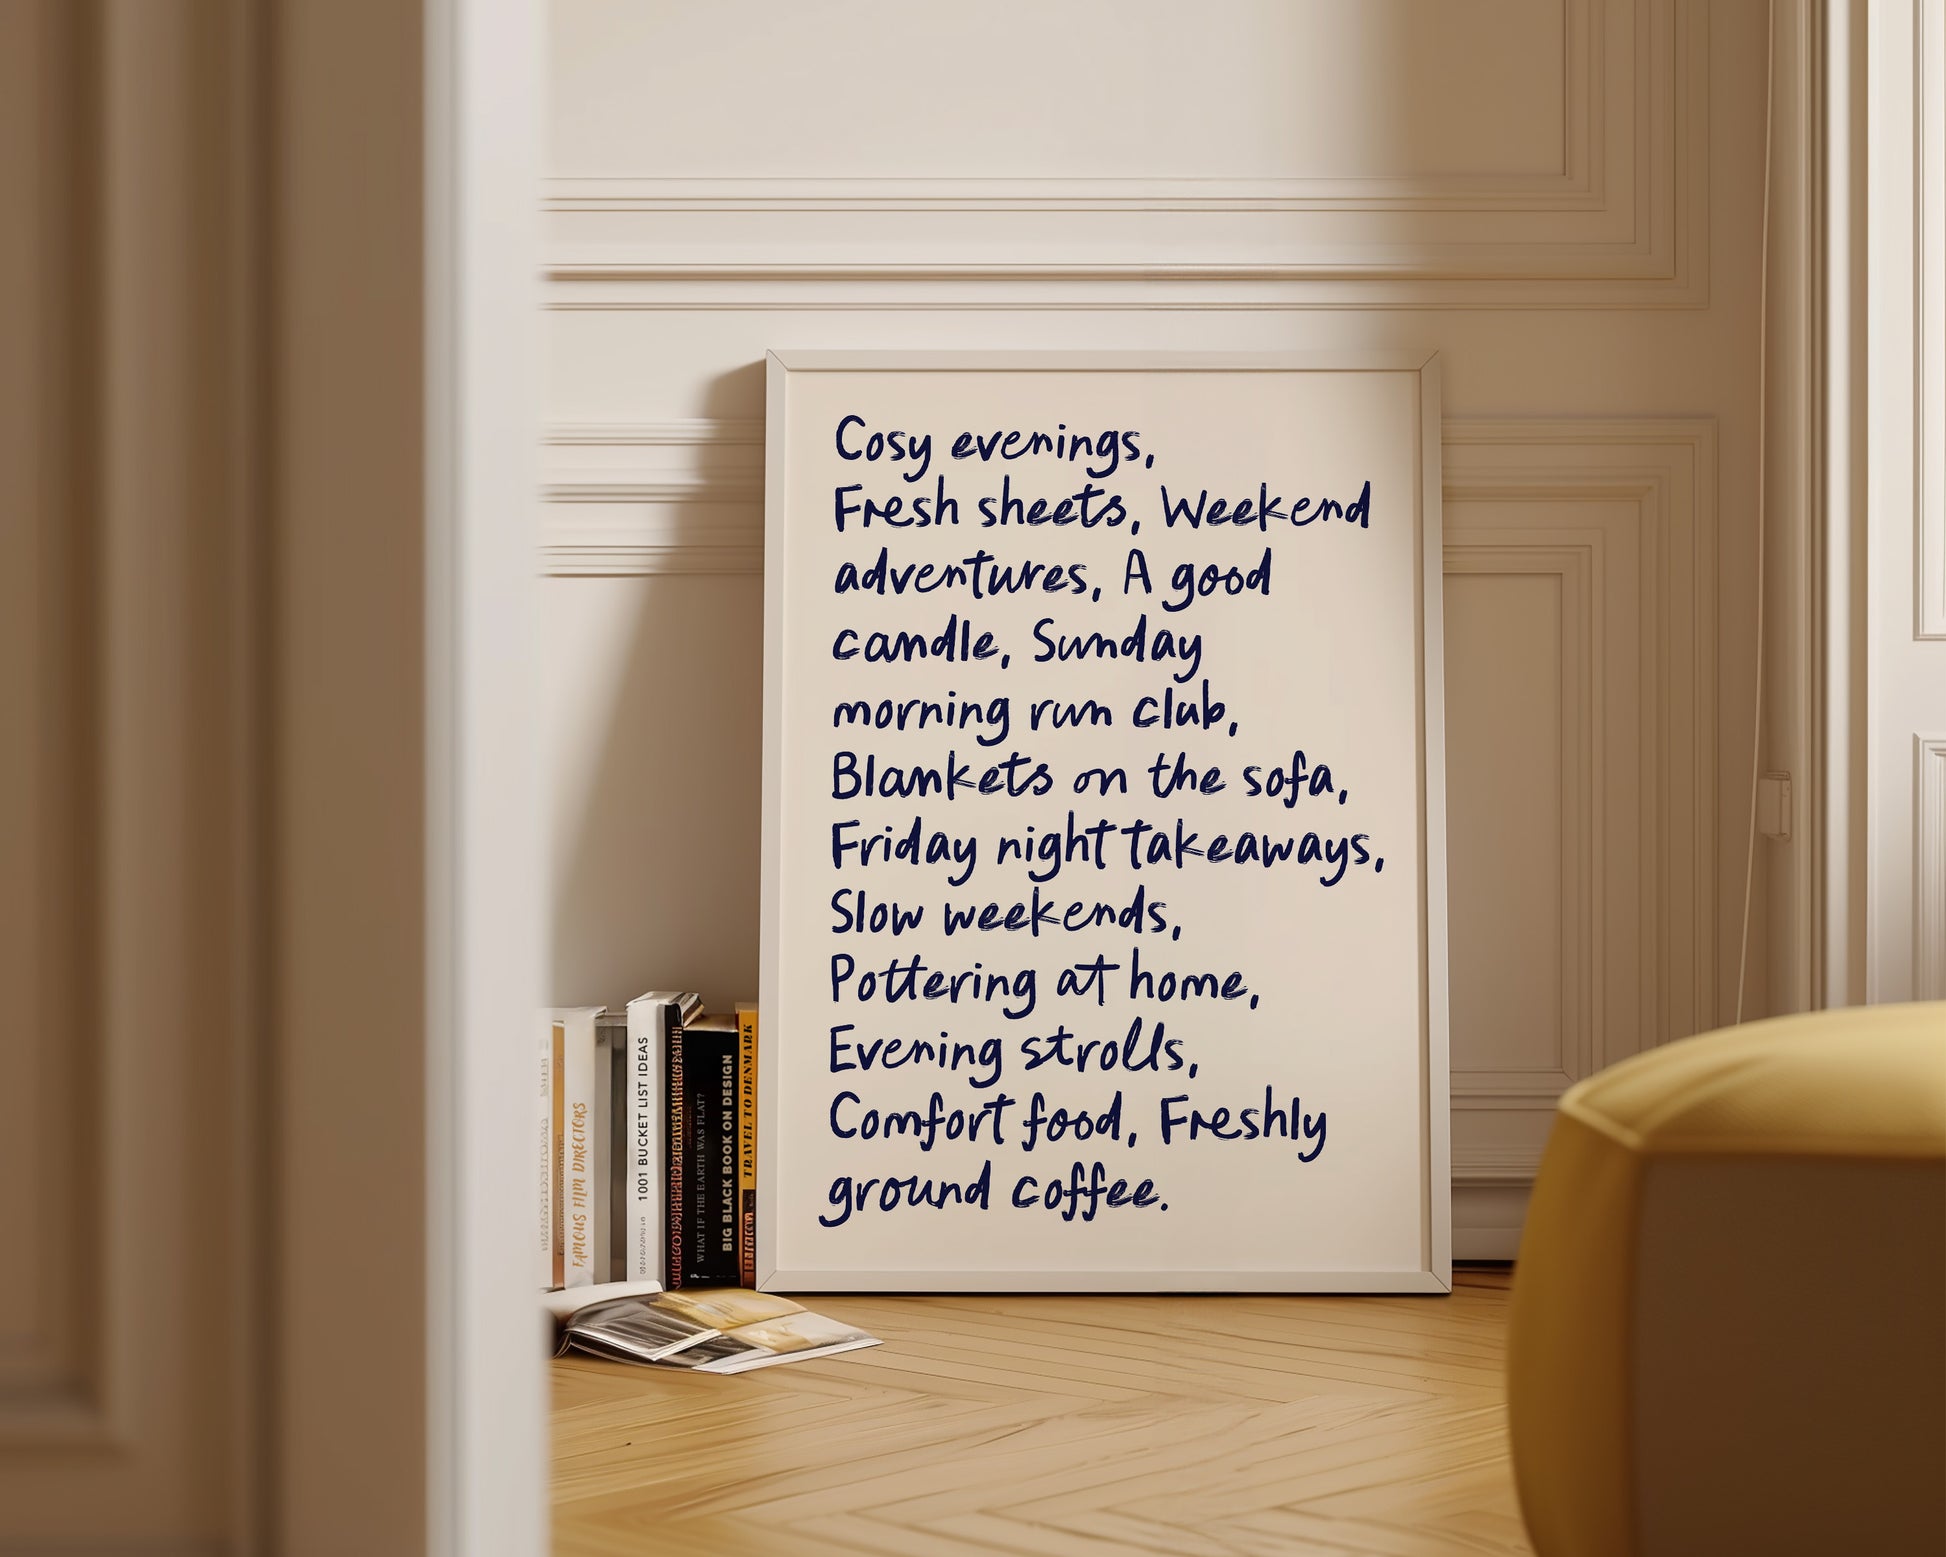 Cosy evenings,
Fresh sheets, Weekend
adventures, A good
candle, Sunday
morning run club,
Blankets on the sofa,
Friday night takeaways,
Slow weekends,
Pottering at home,
Evening strolls,
Comfort food, Freshly
ground coffee.
FAMOUS FILM DIRECTORS
1001 BUCKET LIST IDEAS
WHAT IF THE EARTH WAS FLAT?
BIG BLACK BOOK ON DESIGN
TRAVEL TO DENMARK